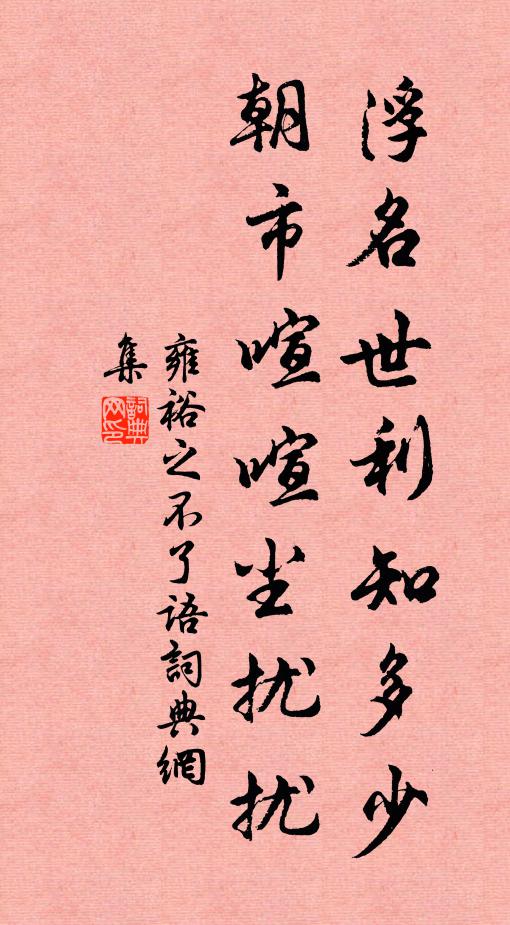 浮名世利知多少
朝市喧喧尘扰扰
雍裕之不了语詞典網
集
詞典网印